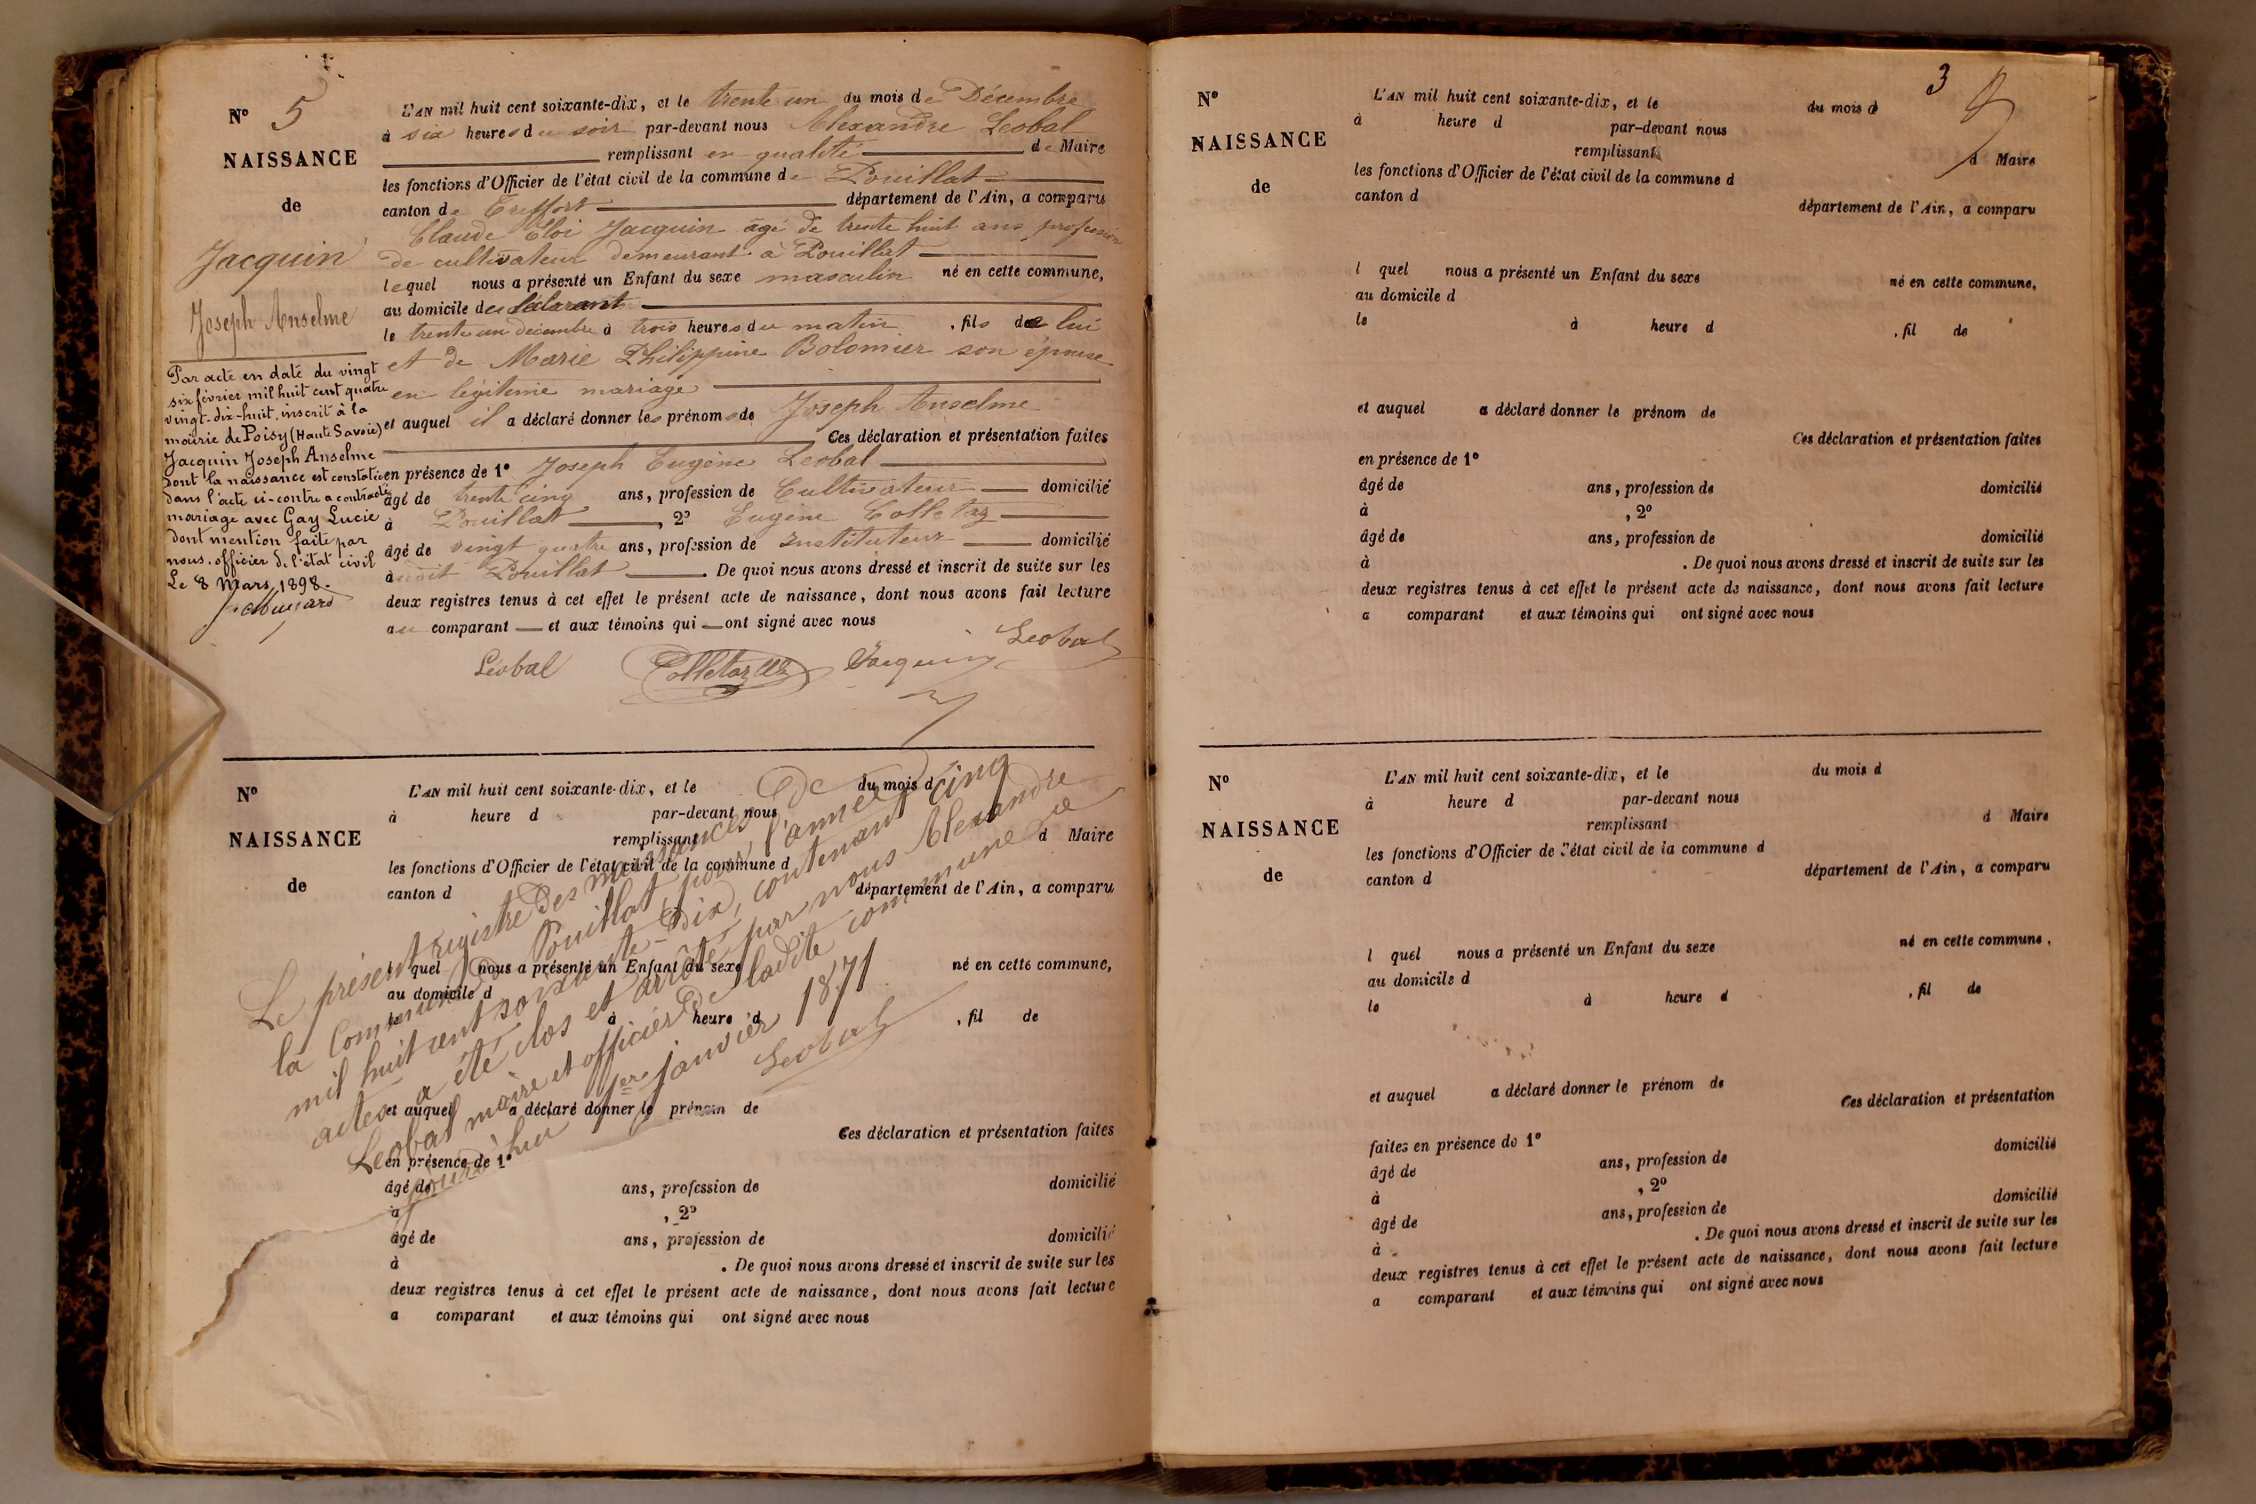 N° 5
NAISSANCE
de
Jacquin
Joseph Anselme
Par acte en date du vingt
six février mil huit cent quatre
vingt-dix-huit, inscrit à la
mairie de Poisy (Haute Savoie)
Jacquin Joseph Anselme
dont la naissance est constatée
dans l'acte ci-contre a contracté
mariage avec Gay Lucie
dont mention faite par
nous, officier de l'état civil
Le 8 Mars 1898.
L'AN mil huit cent soixante-dix, et le trente un du mois de Décembre
à six heures du soir par-devant nous Alexandre Leobal
remplissant en qualité de Maire
les fonctions d'Officier de l'état civil de la commune de Pouillat
canton de Treffort département de l'Ain, a comparu
Claude Eloi Jacquin âgé de trente huit ans profession
de cultivateur demeurant à Pouillat
lequel nous a présenté un Enfant du sexe masculin né en cette commune,
au domicile du déclarant
le trente un décembre à trois heures du matin, fils de lui
et de Marie Philippine Bolomier son épouse
en légitime mariage
et auquel il a déclaré donner les prénoms de Joseph Anselme
Ces déclaration et présentation faites
en présence de 1° Joseph Eugène Leobal
âgé de trente cinq ans, profession de Cultivateur domicilié
à Pouillat, 2° Eugène Colletaz
âgé de vingt quatre ans, profession de Instituteur domicilié
à Pouillat. De quoi nous avons dressé et inscrit de suite sur les
deux registres tenus à cet effet le présent acte de naissance, dont nous avons fait lecture
au comparant et aux témoins qui ont signé avec nous
Léobal Colletaz Jacquin Leobal
N°
NAISSANCE
de
L'AN mil huit cent soixante-dix, et le du mois d
à heure d par-devant nous
remplissant d Maire
les fonctions d'Officier de l'état civil de la commune d
canton d département de l'Ain, a comparu
l quel nous a présenté un Enfant du sexe né en cette commune,
au domicile d
le à heure d , fil de
et auquel a déclaré donner le prénom de
Ces déclaration et présentation faites
en présence de 1°
âgé de ans, profession de domicilié
à , 2°
âgé de ans, profession de domicilié
à . De quoi nous avons dressé et inscrit de suite sur les
deux registres tenus à cet effet le présent acte de naissance, dont nous avons fait lecture
a comparant et aux témoins qui ont signé avec nous
Le présent registre des naissances de
la Commune de Pouillat, pour l'année
mil huit cent soixante-dix, contenant cinq
actes a été clos et arrêté par nous Alexandre
Leobal maire et officier de ladite commune ce
jourd'hui 1er janvier 1871
Leobal
3
N°
NAISSANCE
de
L'AN mil huit cent soixante-dix, et le du mois d
à heure d par-devant nous
remplissant d Maire
les fonctions d'Officier de l'état civil de la commune d
canton d département de l'Ain, a comparu
l quel nous a présenté un Enfant du sexe né en cette commune,
au domicile d
le à heure d , fil de
et auquel a déclaré donner le prénom de
Ces déclaration et présentation faites
en présence de 1°
âgé de ans, profession de domicilié
à , 2°
âgé de ans, profession de domicilié
à . De quoi nous avons dressé et inscrit de suite sur les
deux registres tenus à cet effet le présent acte de naissance, dont nous avons fait lecture
a comparant et aux témoins qui ont signé avec nous
N°
NAISSANCE
de
L'AN mil huit cent soixante-dix, et le du mois d
à heure d par-devant nous
remplissant d Maire
les fonctions d'Officier de l'état civil de la commune d
canton d département de l'Ain, a comparu
l quel nous a présenté un Enfant du sexe né en cette commune,
au domicile d
le à heure d , fil de
et auquel a déclaré donner le prénom de
Ces déclaration et présentation
faites en présence de 1° domicilié
âgé de ans, profession de
à , 2° domicilié
âgé de ans, profession de
à . De quoi nous avons dressé et inscrit de suite sur les
deux registres tenus à cet effet le présent acte de naissance, dont nous avons fait lecture
a comparant et aux témoins qui ont signé avec nous